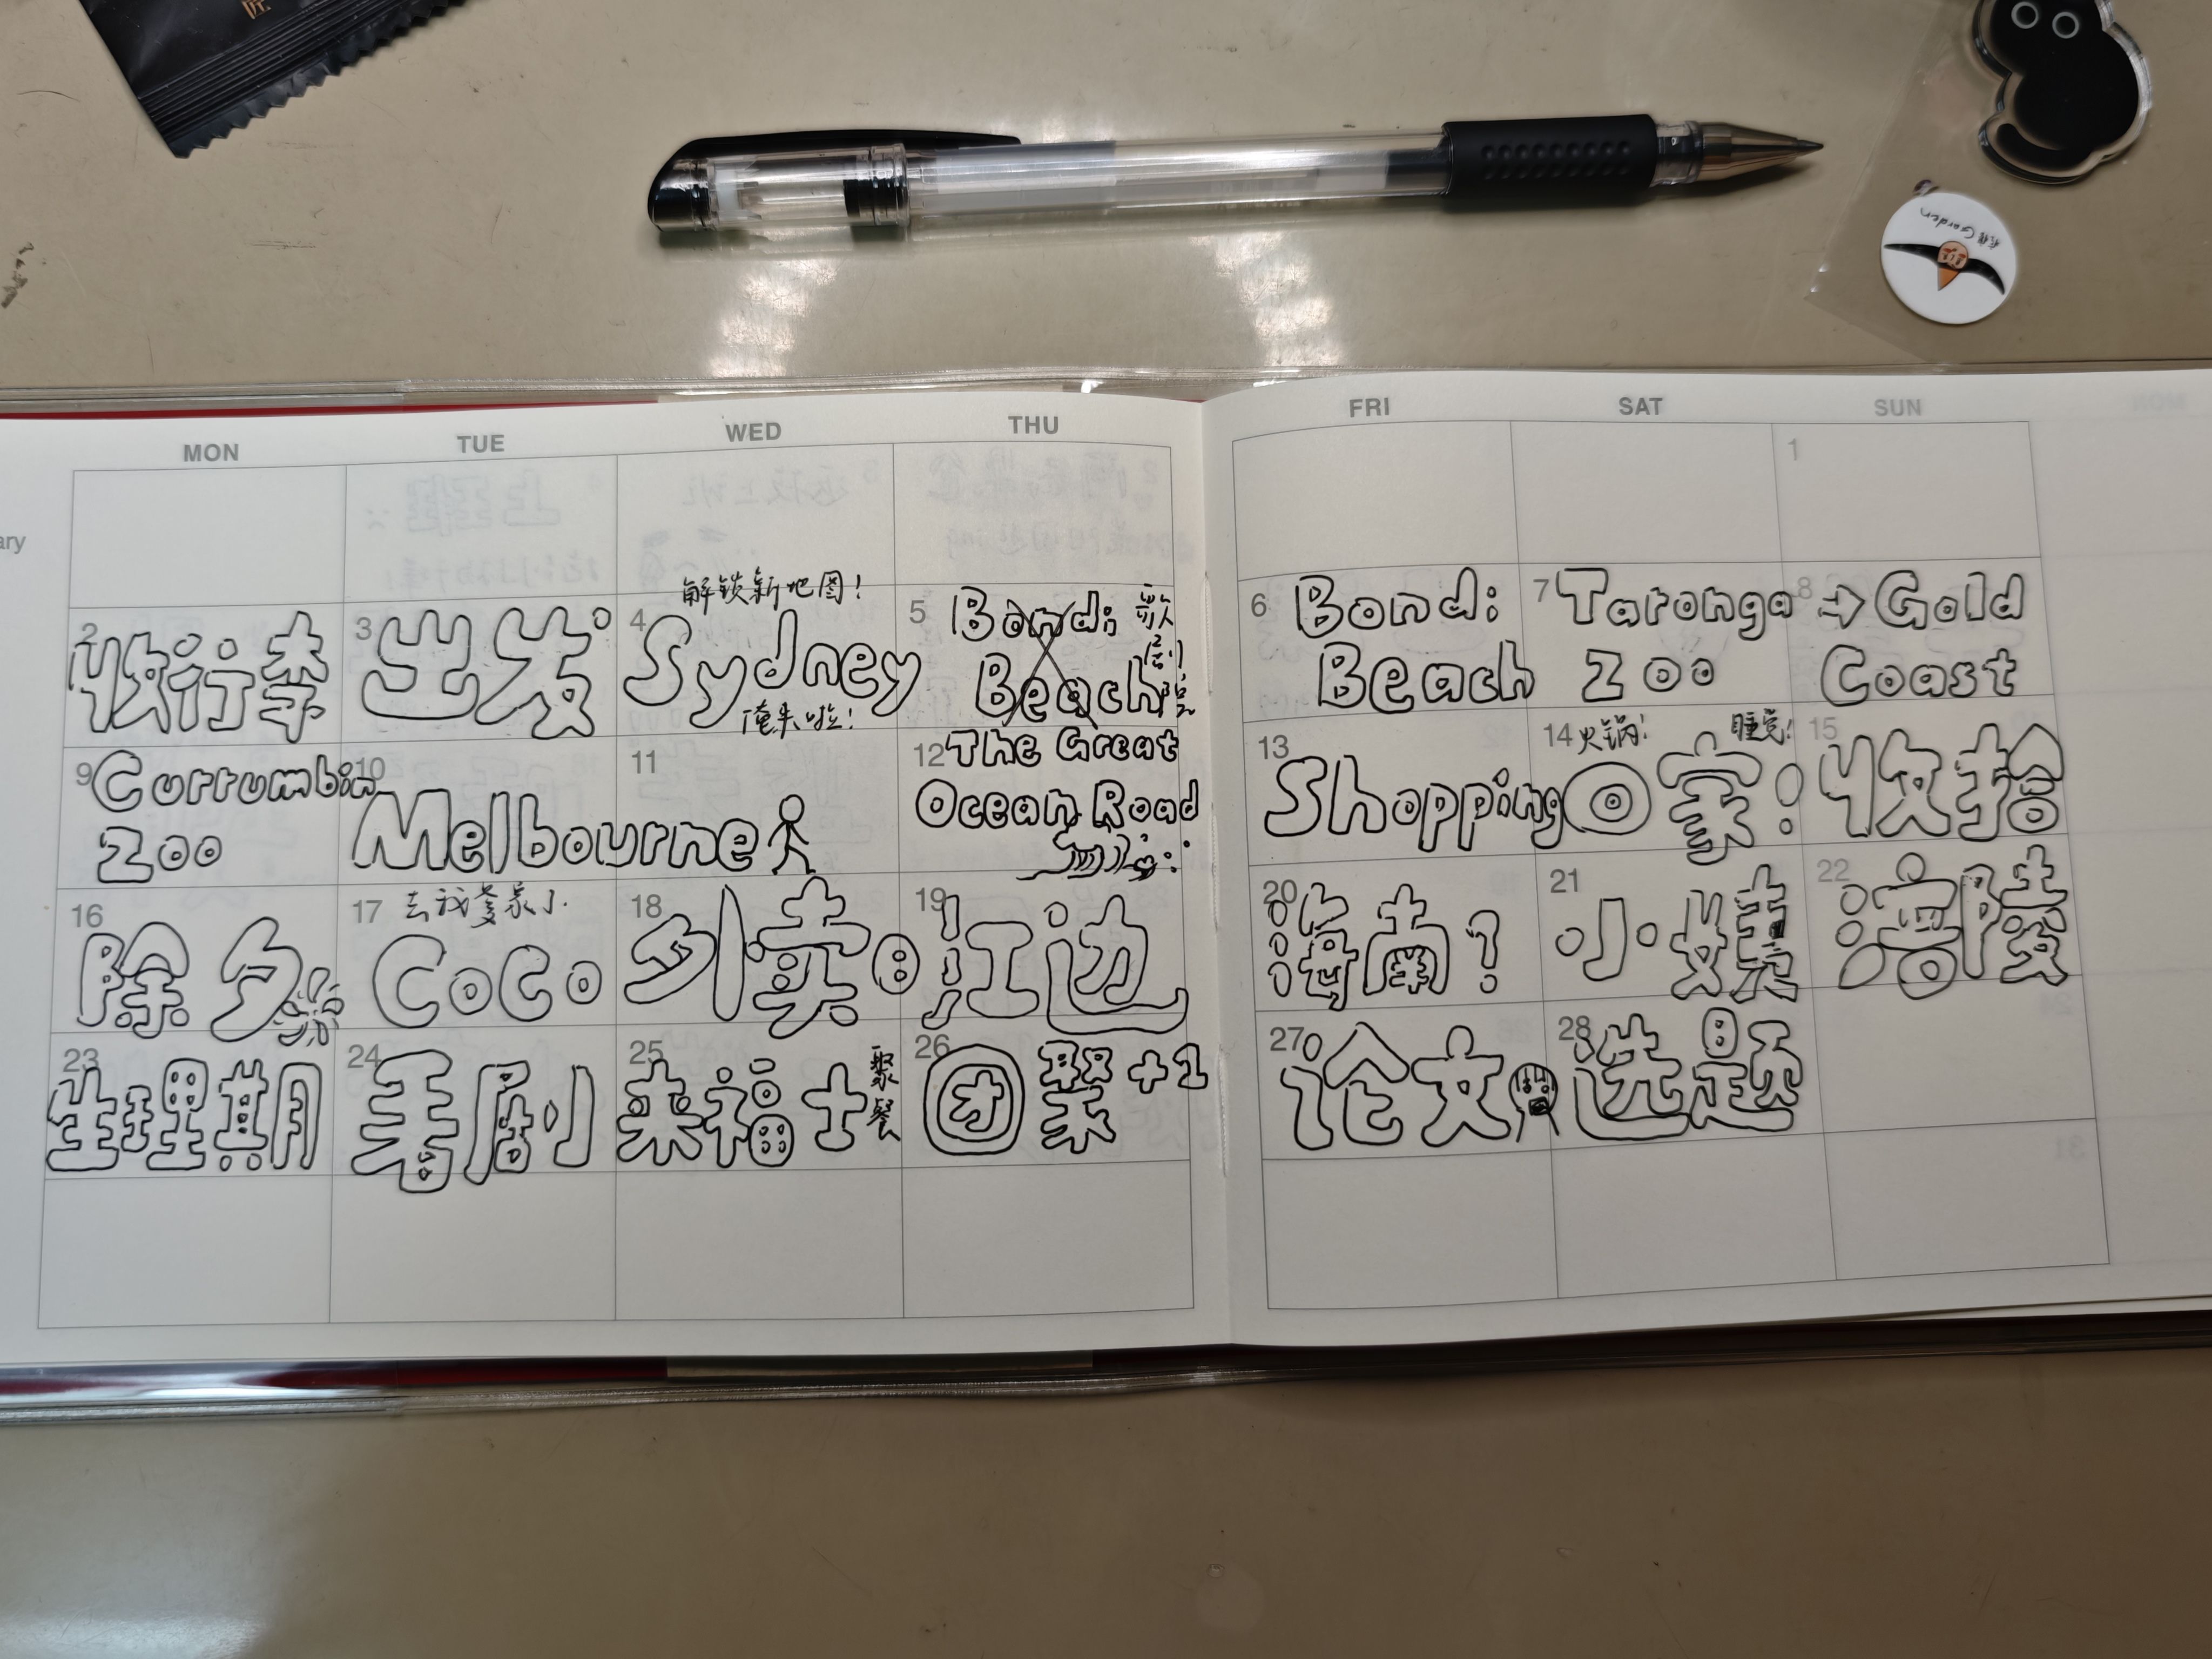 匠
Garden
ary
MON
TUE
WED
THU
FRI
SAT
SUN
1
2
收行李
3
出发
4
解锁新地图！
Sydney
俺来啦！
5
Bondi
Beach
6
Bondi
Beach
7
Taronga
Zoo
8
→Gold
Coast
9
Currumbin
Zoo
10
Melbourne
11
12
The Great
Ocean Road
13
Shopping
14
火锅！
睡觉！
回家！
15
收拾
16
除夕
17
去我爹家了
CoCo
18
外卖日
19
江边
20
海南？
21
小婊
22
涪陵
23
生理期
24
毒剧
25
来福士
聚餐
26
团聚+1
27
论文
28
选题
31